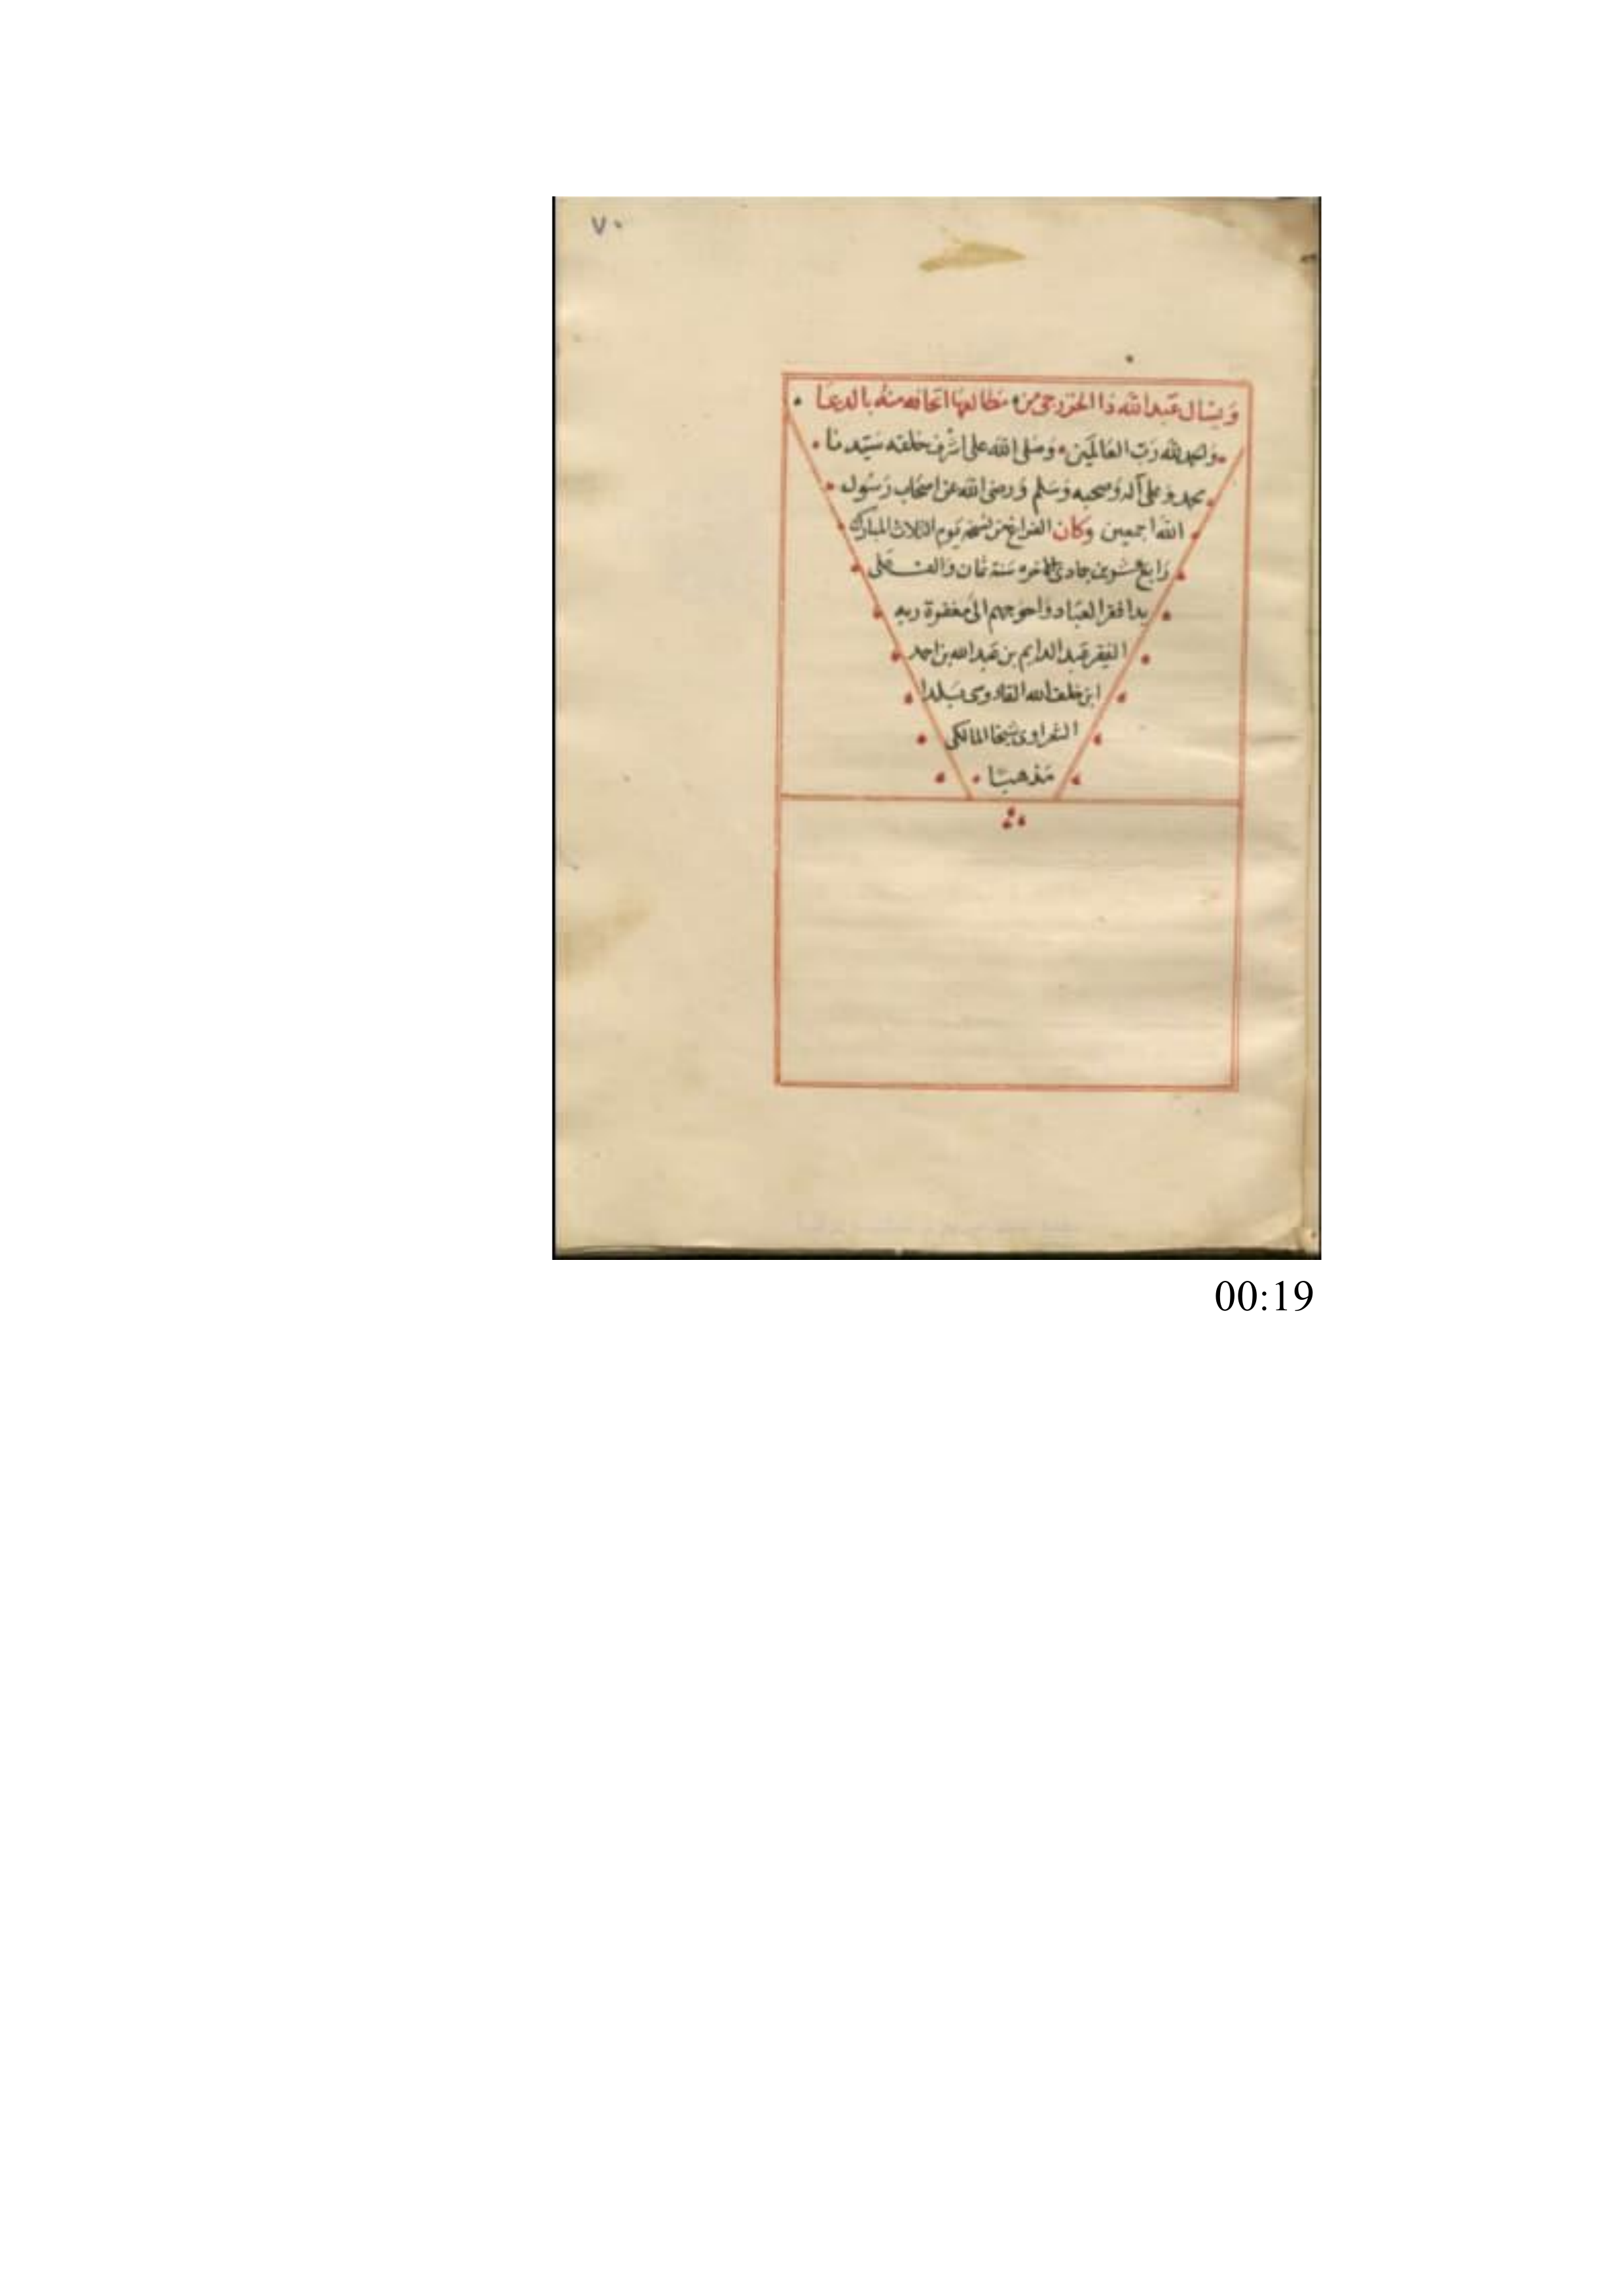 ٧٠
ويسال عبد الله ذا الخزرجي من مطالعها اتحافه منه بالدعا
والحمد لله رب العالمين وصلى الله على اشرف خلقه سيدنا
محمد وعلى آله وصحبه وسلم ورضى الله عن اصحاب رسول
الله اجمعين وكان الفراغ من نسخه يوم الثلاث المبارك
رابع عشرين جمادى الاخره سنة ثمان والف على
يد افقر العباد واحوجهم الى مغفرة ربه
الفقير عبد الدايم بن عبد الله بن احمد
ابن خلف الله القادوسى بلدا
الشعراوى شيخا المالكى
مذهبا
00:19